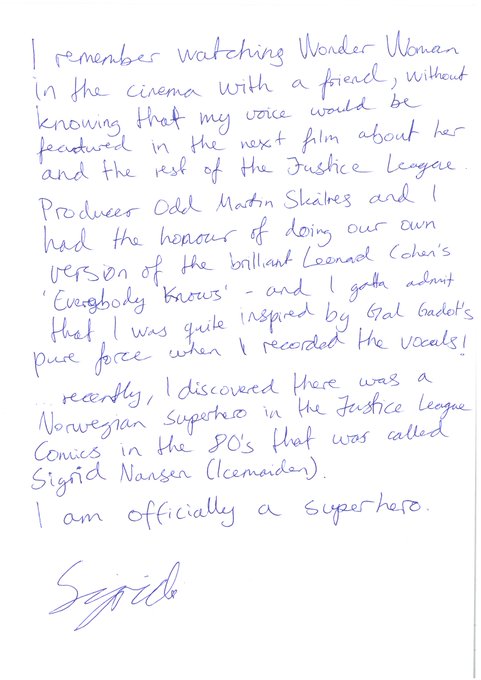 I remember watching Wonder Woman
in the cinema with a friend, without
knowing that my voice would be
featured in the next film about her
and the rest of the Justice League.
Producer Odd Martin Skålnes and I
had the honour of doing our own
version of the brilliant Leonard Cohen's
'Everybody Knows' - and I gotta admit
that I was quite inspired by Gal Gadot's
pure force when I recorded the vocals!
... recently, I discovered there was a
Norwegian superhero in the Justice League
Comics in the 80's that was called
Sigrid Nansen (Icemaiden).
I am officially a superhero.
Sigrid